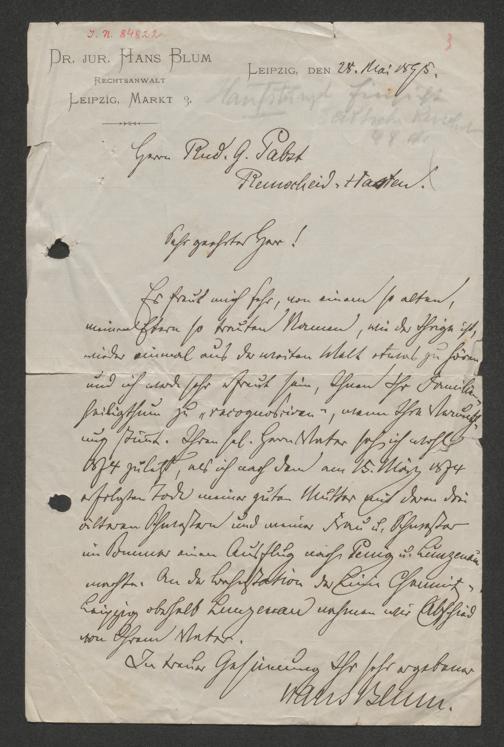 J. N. 84822
3
DR. JUR. HANS BLUM
RECHTSANWALT
LEIPZIG, MARKT 3.
LEIPZIG, DEN 28. Mai 1895.
Herrn Rud. G. Pabst
Remscheid-Hasten!
Sehr geehrter Herr!
Es freut mich sehr, von einem so alten,
meinen Eltern so treuten Namen, wie der Ihrige ist,
wieder einmal aus der weiten Welt etwas zu hören
und ich werde sehr erfreut sein, Ihnen Ihr Familien-
heiligthum zu "recognosciren", wenn Ihre Vermuth-
ung stimmt. Ihren sel. Herrn Vater sah ich wohl
1874 zuletzt, als ich nach dem am 15. März 1874
erfolgten Tode meiner guten Mutter mit deren drei
älteren Schwestern und meiner Frau u. Schwester
im Sommer einen Ausflug nach Penig u. Lunzenau
machte. An der Bahnstation der Linie Chemnitz-
Leipzig oberhalb Lunzenau nahmen wir Abschied
von Ihrem Vater.
In treuer Gesinnung Ihr sehr ergebener
Hans Blum.